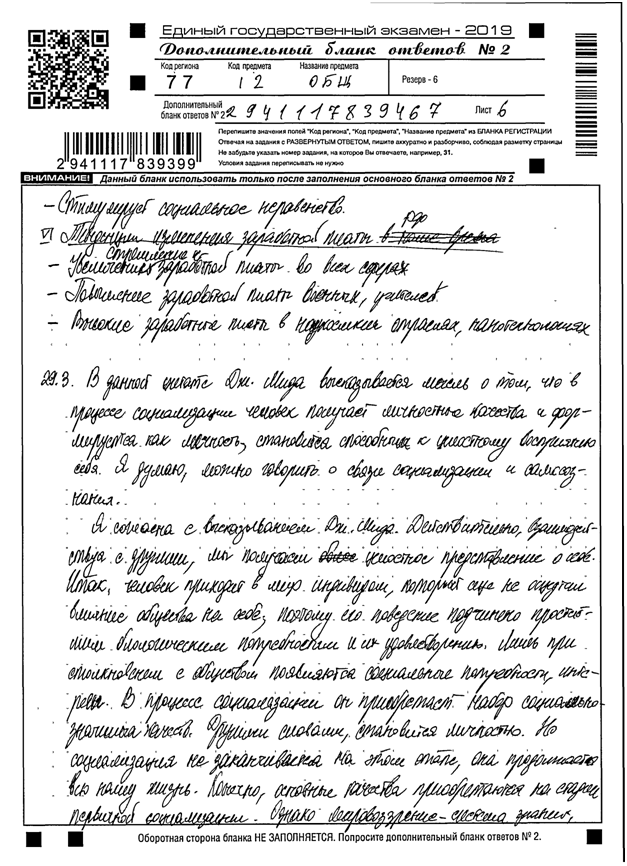 Единый государственный экзамен - 2019
Дополнительный бланк ответов № 2
Код региона Код предмета Название предмета
77 12 ОБЩ Резерв - 6
Дополнительный бланк ответов № 2 2941117839467 Лист 6
Перепишите значения полей "Код региона", "Код предмета", "Название предмета" из БЛАНКА РЕГИСТРАЦИИ
Отвечая на задания с РАЗВЕРНУТЫМ ОТВЕТОМ, пишите аккуратно и разборчиво, соблюдая разметку страницы
Не забудьте указать номер задания, на которое Вы отвечаете, например, 31.
Условия задания переписывать не нужно
2941117839399
ВНИМАНИЕ! Данный бланк использовать только после заполнения основного бланка ответов № 2
- Стимулирует социальное неравенство.
РФ
VI Тенденции изменения заработной платы в наше время
стремление к
- Увеличения заработной платы во всех сферах
- Повышение заработной платы военных, учителей
- Высокие заработные платы в наукоемких отраслях, нанотехнологиях
29.3. В данной цитате Дж. Мида высказывается мысль о том, что в
процессе социализации человек получает личностные качества и фор-
мируется как личность, становится способным к целостному восприятию
себя. Я думаю, можно говорить о связи социализации и самосоз-
нания.
Я согласна с высказыванием Дж. Мида. Действительно, взаимодей-
ствуя с другими, мы получаем целостное представление о себе.
Итак, человек приходит в мир индивидом, который еще не ощутил
влияние общества на себе, поэтому его поведение подчинено простей-
шим биологическим потребностям и их удовлетворению. Лишь при
столкновении с обществом появляются социальные потребности, инте-
ресы. В процессе социализации он приобретает набор социально-
значимых качеств. Другими словами, становится личностью. Но
социализация не заканчивается на этом этапе, она продолжается
всю нашу жизнь. Конечно, основные качества приобретаются на стадии
первичной социализации. Однако мировоззрение - система знаний,
Оборотная сторона бланка НЕ ЗАПОЛНЯЕТСЯ. Попросите дополнительный бланк ответов № 2.